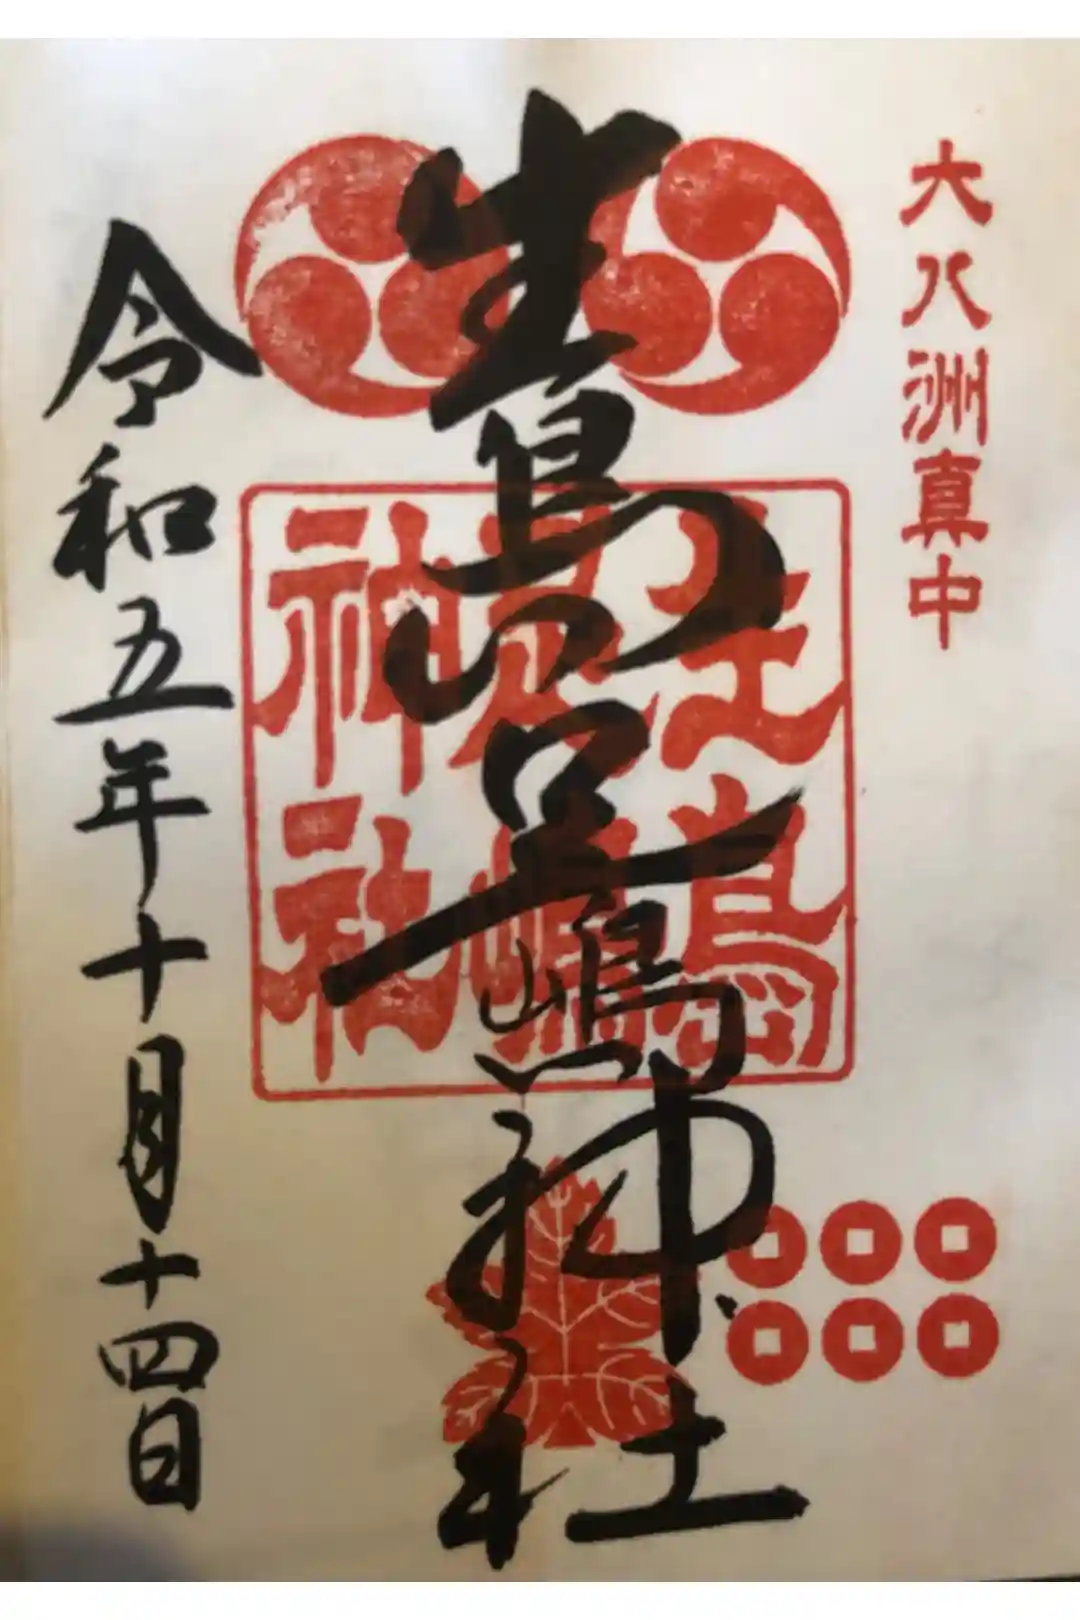 大八洲真中
生島足嶋神社
生島
足嶋
神社
令和五年十月十四日